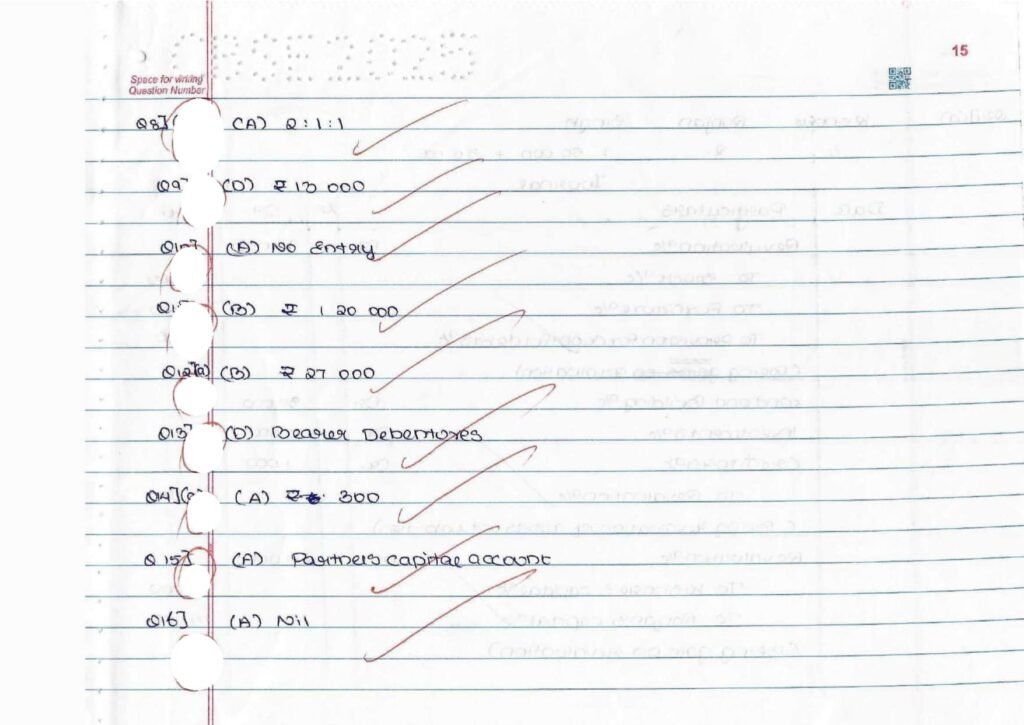 CBSE 2025
15
Space for writing
Question Number
Q8] (A) 2:1:1
Q9 (D) ₹ 13 000
Q10 (A) No Entry
Q1 (B) ₹ 1 20 000
Q12] (B) ₹ 27 000
Q13 (D) Bearer Debentures
Q14] (A) ₹ 300
Q 15] (A) Partners capital account
Q16] (A) Nil